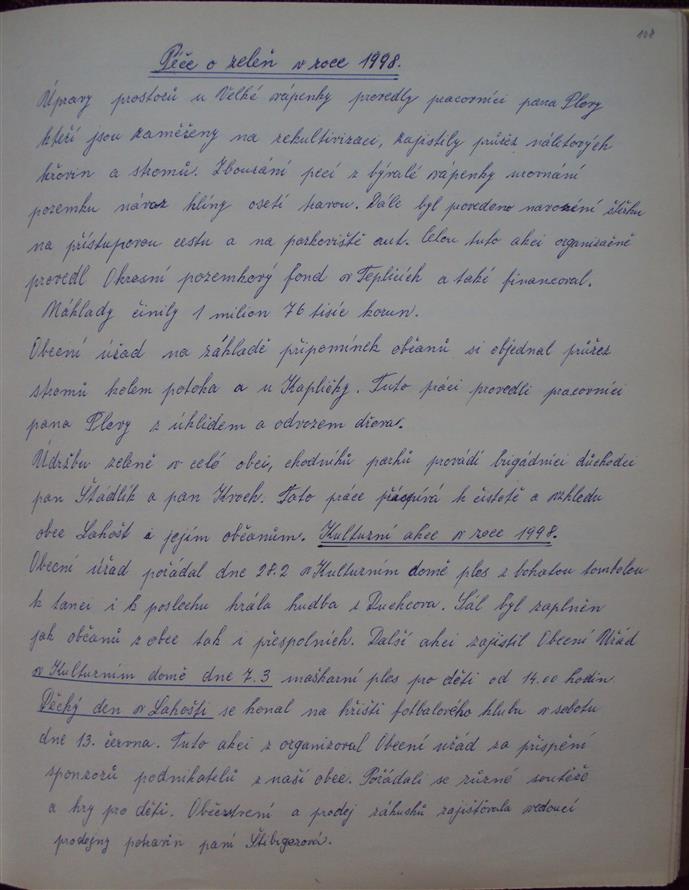 108
Péče o zeleň v roce 1998.
Úpravy prostorů u Velké vápenky provedly pracovníci pana Plevy
kteří jsou zaměřeny na rekultivizaci, zajistily průřez náletových
křovin a stromů. Zbourání pecí z bývalé vápenky urovnání
pozemku návoz hlíny osetí travou. Dále byl provedeno navození štěrku
na přístupovou cestu a na parkoviště aut. Celou tuto akci organizačně
provedl Okresní pozemkový fond v Teplicích a také financoval.
Náklady činily 1 milion 76 tisíc korun.
Obecní úřad na základě připomínek občanů si objednal průřez
stromů kolem potoka a u Kapličky. Tuto práci provedli pracovníci
pana Plevy z úklidem a odvozem dřeva.
Údržbu zeleně v celé obci, chodníků parků provádí brigádníci důchodci
pan Štádlík a pan Kroch. Tato práce přispívá k čistotě a vzhledu
obce Lahošť i jejím občanům. Kulturní akce v roce 1998.
Obecní úřad pořádal dne 28.2 v Kulturním domě ples z bohatou tombolou
k tanci i k poslechu hrála hudba z Duchcova. Sál byl zaplněn
jak občanů z obce tak i přespolních. Další akci zajistil Obecní Úřad
v Kulturním domě dne 7.3 maškarní ples pro děti od 14.00 hodin
Děcký den v Lahošti se konal na hřišti fotbalového klubu v sobotu
dne 13. června. Tuto akci z organizoval Obecní úřad za přispění
sponzorů podnikatelů z naší obce. Pořádali se různé soutěže
a hry pro děti. Občerstvení a prodej zákusků zajišťovala vedoucí
prodejny potravin paní Štibigerová.